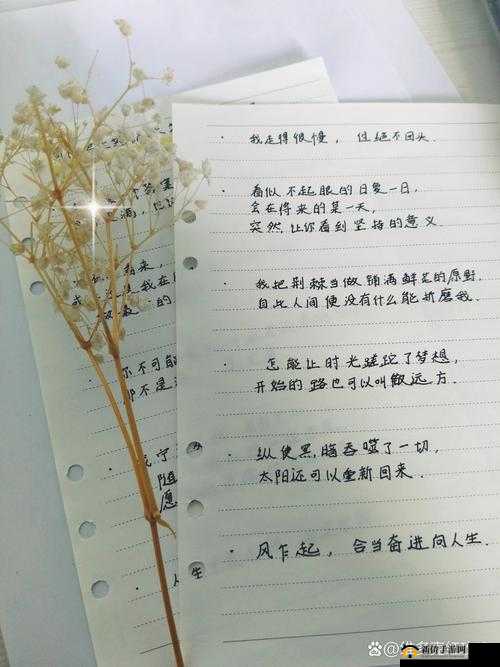 · 我走得很慢，但绝不回头.
· 看似不起眼的日复一日,
会在将来的某一天,
突然,让你看到坚持的意义.
· 我把荆棘当做铺满鲜花的原野,
自此人间便没有什么能折磨我.
· 怎能让时光蹉跎了梦想,
开始的路也可以叫做远方.
· 纵使黑,暗吞噬了一切,
太阳还可以重新回来.
· 风乍起，合当奋进向人生.
我在
的
不可能
那不是
宁
随
愿
生
手游网